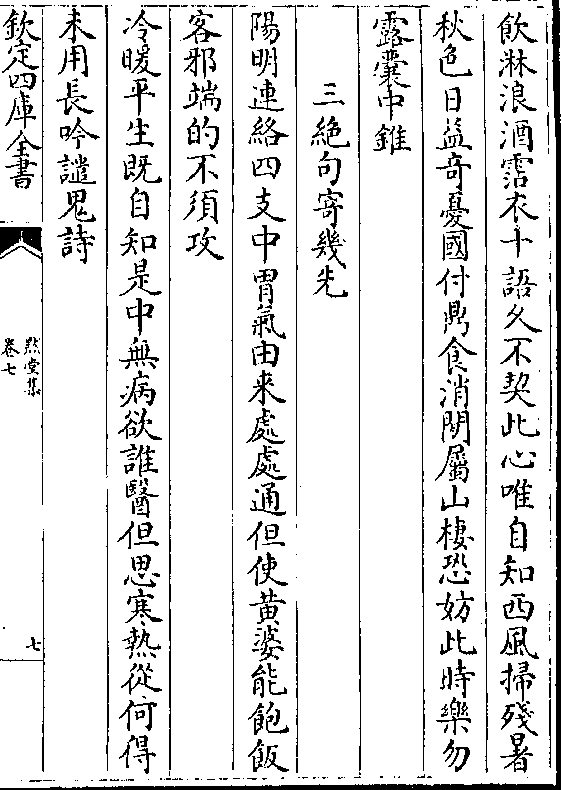 飲淋浪酒霑衣十語久不契此心唯自知西風掃殘暑
秋色日益奇憂國付鼎食消閒屬山棲恐妨此時樂勿
露囊中錐
三絶句寄幾先
陽明連絡四支中胃氣由来處處通但使黄婆能飽飯
客邪端的不須攻
冷暖平生既自知是中無病欲誰醫但思寒熱從何得
未用長吟譴鬼詩
欽定四庫全書
㸃堂集
卷七
七